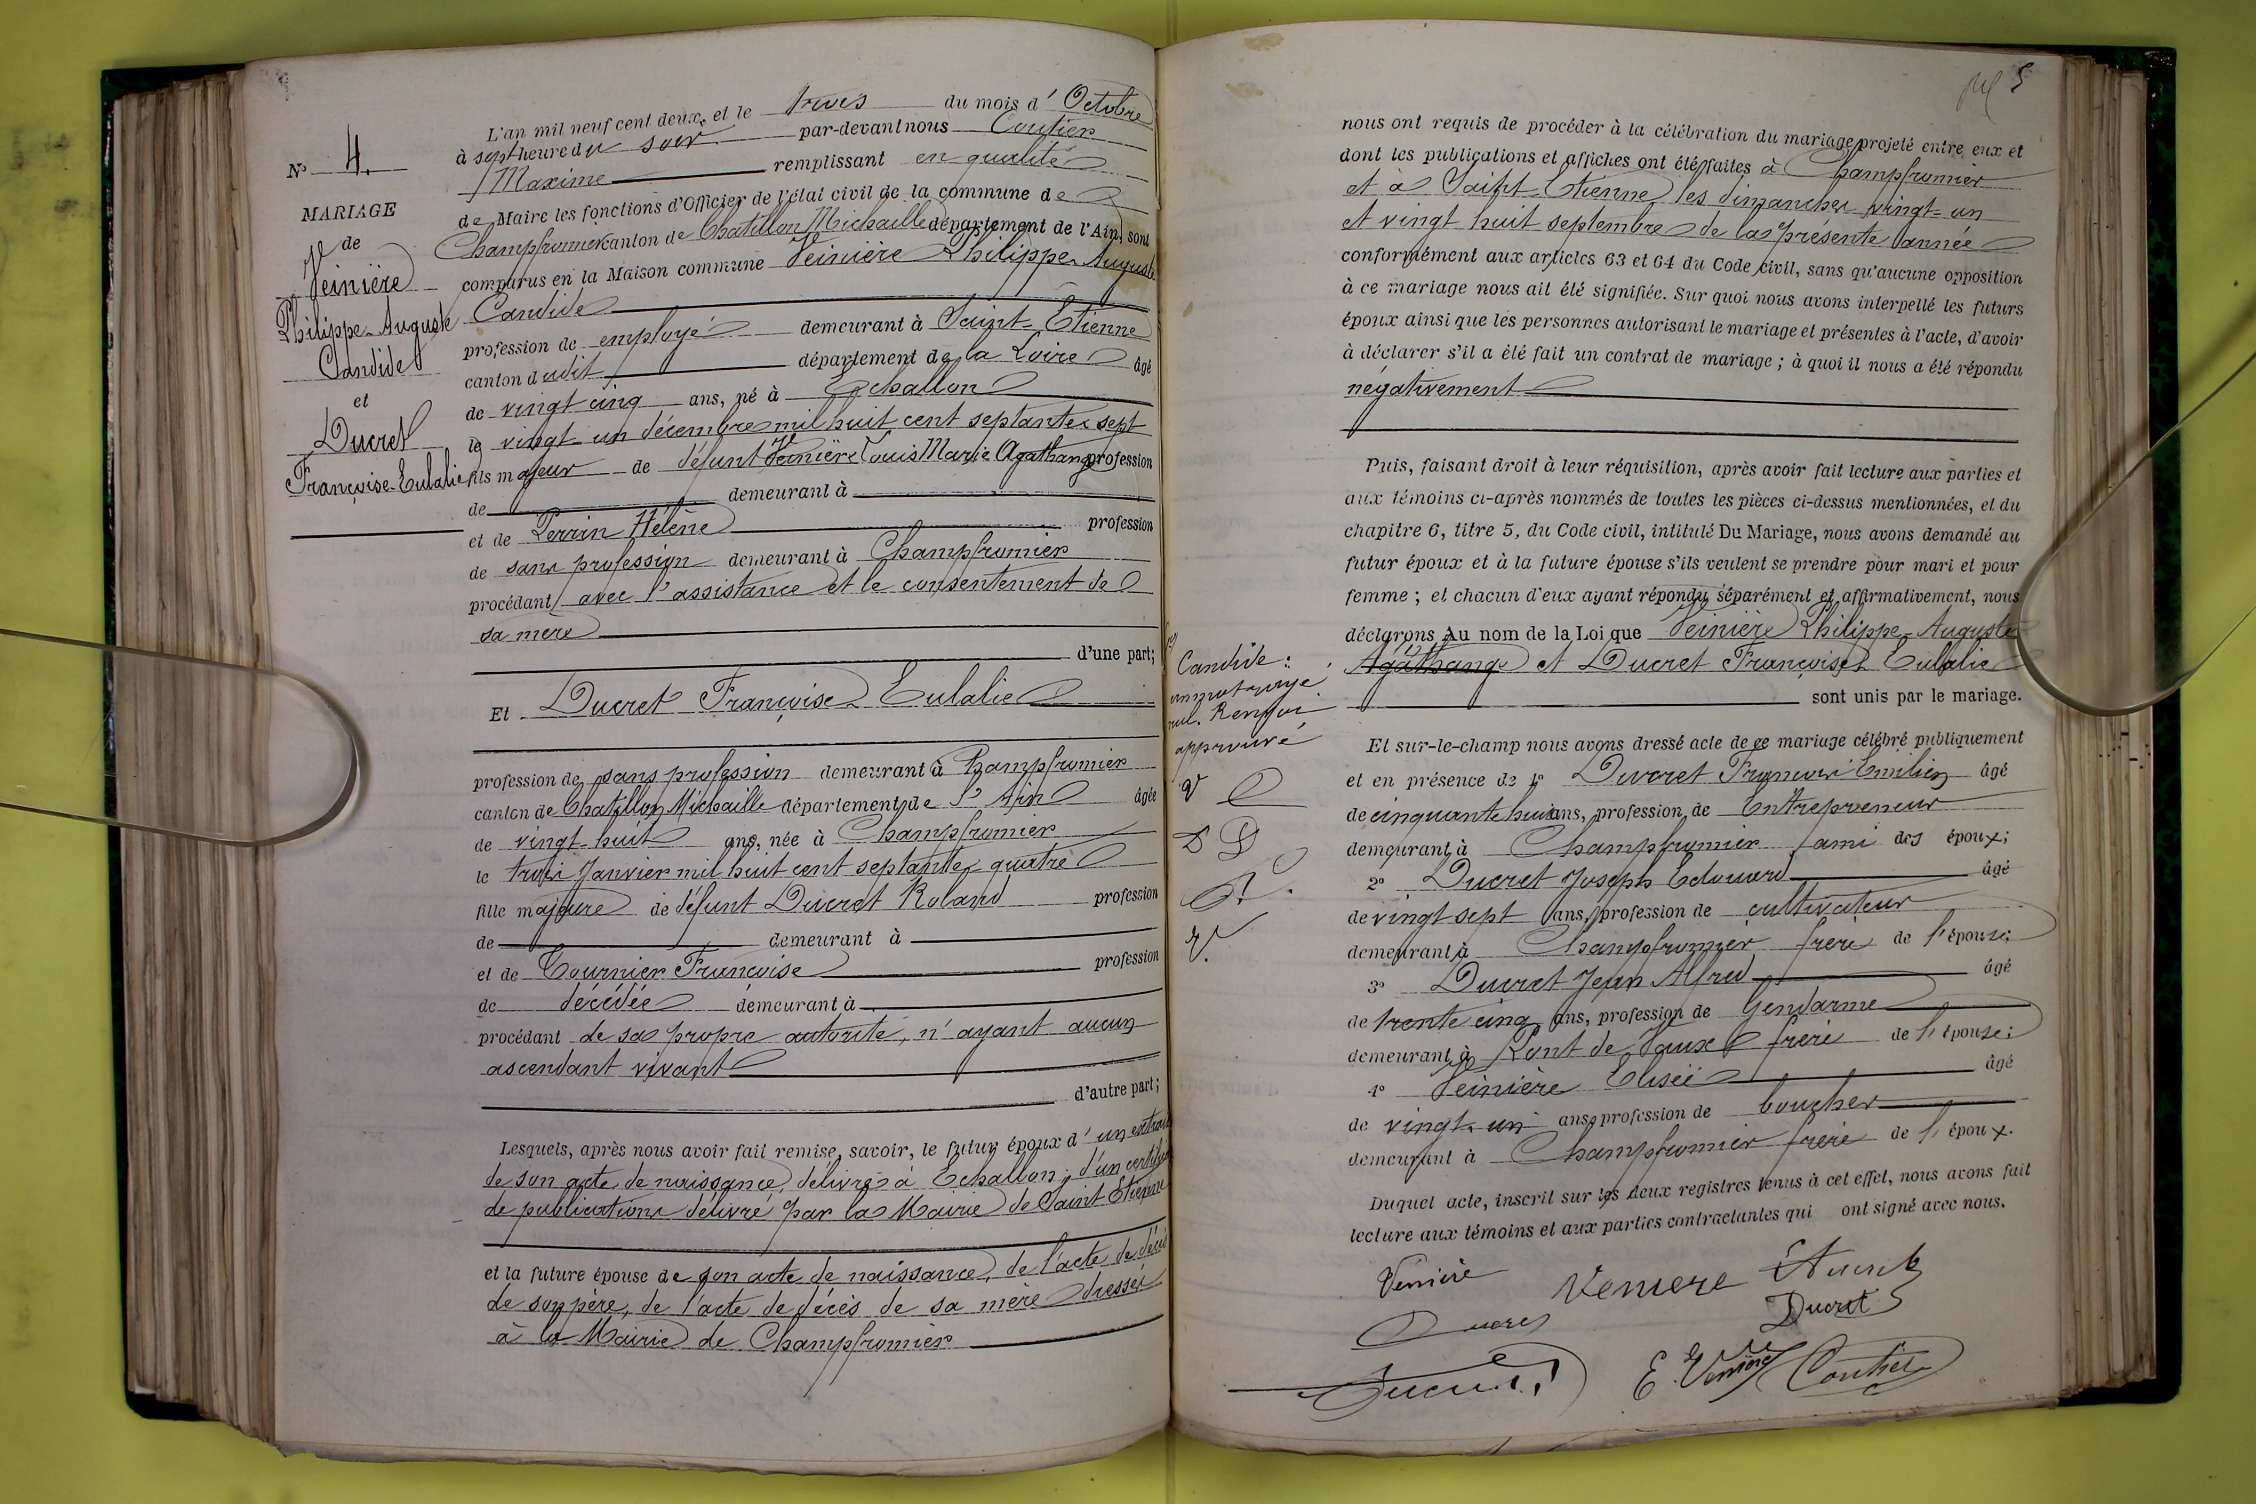 N° 4.
MARIAGE
de
Veinière
Philippe-Auguste
Candide
et
Ducret
Françoise-Eulalie
L'an mil neuf cent deux, et le trois du mois d'Octobre
à sept heure du soir par-devant nous Coutier
Maxime remplissant en qualité
de Maire les fonctions d'Officier de l'état civil de la commune de
Champfromier canton de Chatillon Michaille département de l'Ain, sont
comparus en la Maison commune Veinière Philippe-Auguste
Candide
profession de employé demeurant à Saint-Etienne
canton dudit département de la Loire âgé
de vingt cinq ans, né à Echallon
le vingt-un décembre mil huit cent septante sept
fils majeur de défunt Veinière Louis Marie Agathange profession
de demeurant à
et de Perrin Hélène profession
de sans profession demeurant à Champfromier
procédant avec l'assistance et le consentement de
sa mère
d'une part;
Et Ducret Françoise Eulalie
profession de sans profession demeurant à Champfromier
canton de Chatillon Michaille département de l'Ain âgée
de vingt-huit ans, née à Champfromier
le trois Janvier mil huit cent septante quatre
fille majeure de défunt Ducret Roland profession
de demeurant à
et de Tournier Françoise profession
de décédée demeurant à
procédant de sa propre autorité, n'ayant aucun
ascendant vivant
d'autre part;
Lesquels, après nous avoir fait remise, savoir, le futur époux d'un extrait
de son acte de naissance, délivré à Echallon; d'un certificat
de publications délivré par la Mairie de Saint Etienne
et la future épouse de son acte de naissance, de l'acte de décès
de son père, de l'acte de décès de sa mère dressés
à la Mairie de Champfromier
5
nous ont requis de procéder à la célébration du mariage projeté entre eux et
dont les publications et affiches ont été faites à Champfromier
et à Saint-Etienne les dimanches vingt-un
et vingt huit septembre de la présente année
conformément aux articles 63 et 64 du Code civil, sans qu'aucune opposition
à ce mariage nous ait été signifiée. Sur quoi nous avons interpellé les futurs
époux ainsi que les personnes autorisant le mariage et présentes à l'acte, d'avoir
à déclarer s'il a été fait un contrat de mariage; à quoi il nous a été répondu
négativement
Puis, faisant droit à leur réquisition, après avoir fait lecture aux parties et
aux témoins ci-après nommés de toutes les pièces ci-dessus mentionnées, et du
chapitre 6, titre 5, du Code civil, intitulé Du Mariage, nous avons demandé au
futur époux et à la future épouse s'ils veulent se prendre pour mari et pour
femme; et chacun d'eux ayant répondu séparément et affirmativement, nous
déclarons Au nom de la Loi que Veinière Philippe-Auguste
Agathange et Ducret Françoise Eulalie
sont unis par le mariage.
Candide:
nul. Renvoi
approuvé
Et sur-le-champ nous avons dressé acte de ce mariage célébré publiquement
et en présence de 1° Ducret François Emilien âgé
de cinquante huit ans, profession de Entrepreneur
demeurant à Champfromier ami des époux;
2° Ducret Joseph Edouard âgé
de vingt sept ans, profession de cultivateur
demeurant à Champfromier frère de l'épouse;
3° Ducret Jean Alfred âgé
de trente cinq ans, profession de Gendarme
demeurant à Pont de Vaux frère de l'épouse;
4° Veinière Elisée âgé
de vingt-un ans, profession de boucher
demeurant à Champfromier frère de l'époux.
Duquel acte, inscrit sur les deux registres tenus à cet effet, nous avons fait
lecture aux témoins et aux parties contractantes qui ont signé avec nous.
Veniere
Ducret
Ducret
E. Veniere Coutier